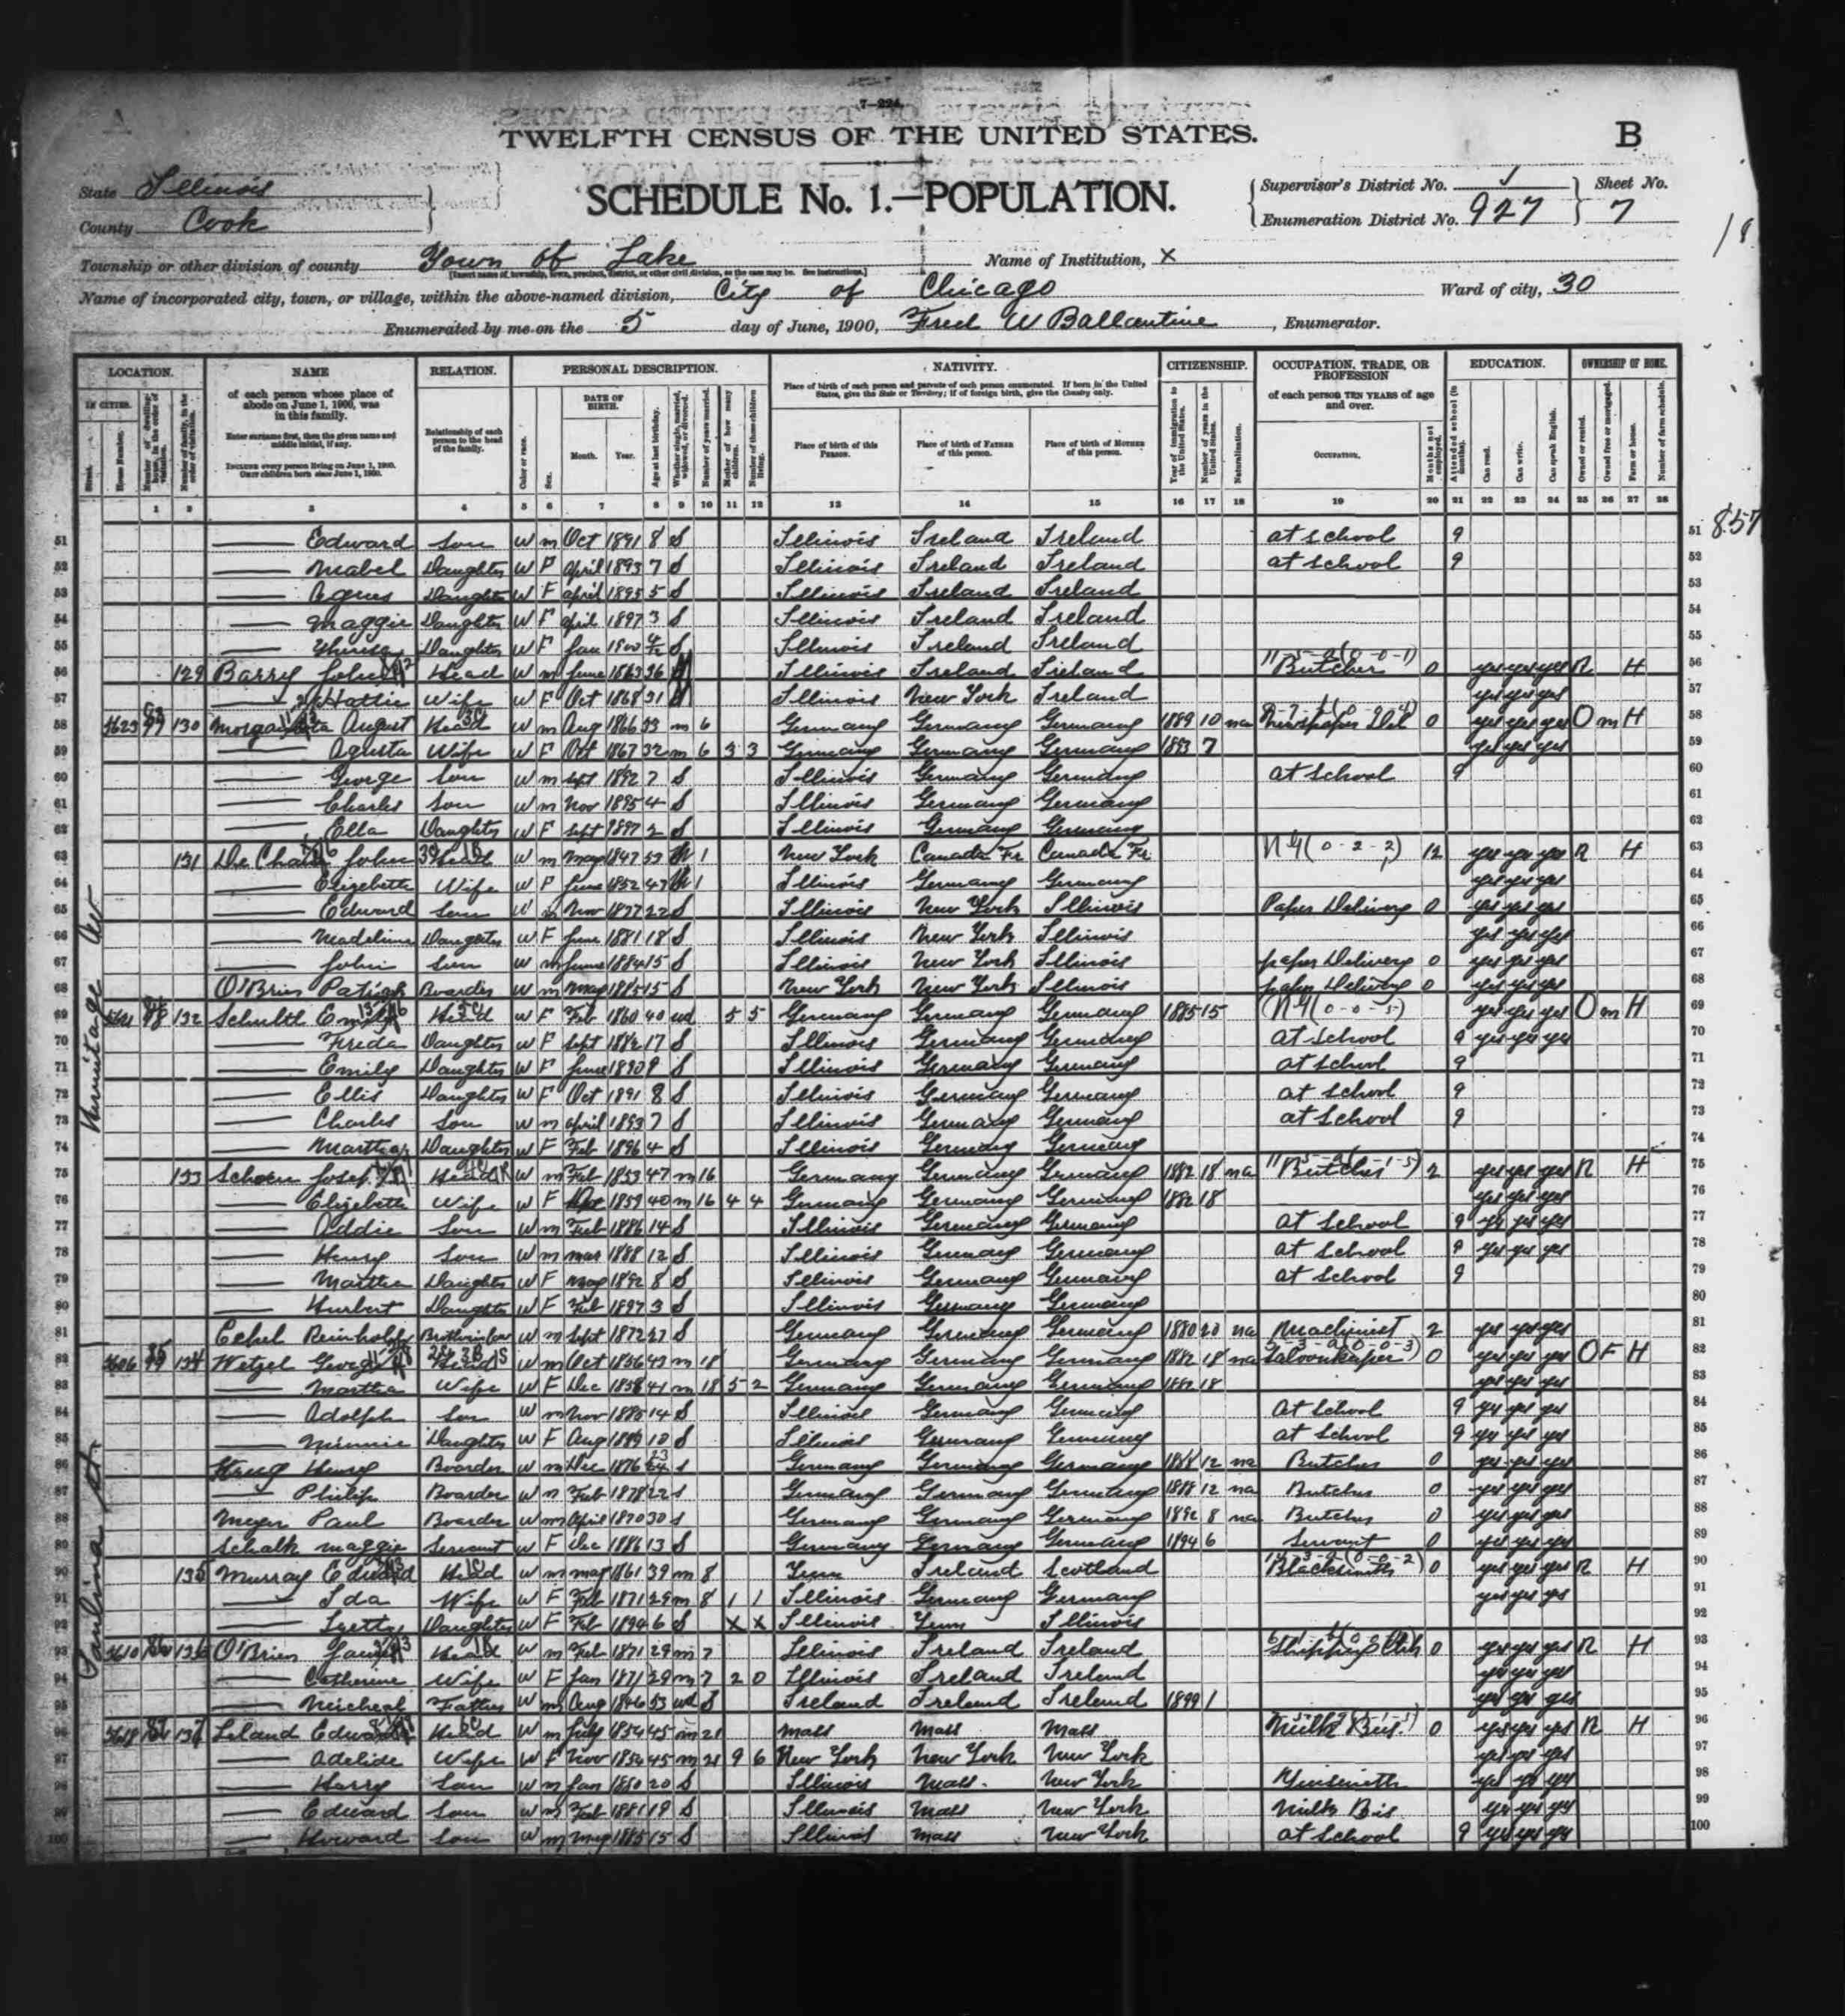 7—224.
TWELFTH CENSUS OF THE UNITED STATES.
B
State Illinois
County Cook
SCHEDULE No. 1.—POPULATION.
Supervisor's District No. 1
Enumeration District No. 927
Sheet No. 7
Township or other division of county Town of Lake
Name of Institution, X
Name of incorporated city, town, or village, within the above-named division, City of Chicago
Ward of city, 30
Enumerated by me on the 5 day of June, 1900, Fred W Ballantine, Enumerator.
LOCATION. NAME RELATION. PERSONAL DESCRIPTION. NATIVITY. CITIZENSHIP. OCCUPATION, TRADE, OR PROFESSION EDUCATION. OWNERSHIP OF HOME.
IN CITIES. of each person whose place of abode on June 1, 1900, was in this family.
Enter surname first, then the given name and middle initial, if any.
INCLUDE every person living on June 1, 1900. OMIT children born since June 1, 1900.
Relationship of each person to the head of the family.
DATE OF BIRTH. Month. Year.
Place of birth of each person and parents of each person enumerated. If born in the United States, give the State or Territory; if of foreign birth, give the Country only.
Place of birth of this Person. Place of birth of Father of this person. Place of birth of Mother of this person.
of each person TEN YEARS of age and over.
Occupation.
1 2 3 4 5 6 7 8 9 10 11 12 13 14 15 16 17 18 19 20 21 22 23 24 25 26 27 28
51 Edward Son W m Oct 1891 8 S Illinois Ireland Ireland at school 9 51 857
52 Mabel Daughter W F April 1893 7 S Illinois Ireland Ireland at school 9 52
53 Agnes Daughter W F April 1895 5 S Illinois Ireland Ireland 53
54 Maggie Daughter W F April 1897 3 S Illinois Ireland Ireland 54
55 Daughter W F Jan 1900 S Illinois Ireland Ireland 55
56 129 Barry John Head W m June 1863 36 Illinois Ireland Ireland Butcher 0 yes yes yes R H 56
57 Hattie Wife W F Oct 1868 31 Illinois New York Ireland yes yes yes 57
58 5623 130 August Head W m Aug 1866 33 m 6 Germany Germany Germany 1889 10 na 0 yes yes yes O m H 58
59 Agusta Wife W F Oct 1867 32 m 6 3 3 Germany Germany Germany 1893 7 yes yes yes 59
60 George Son W m Sept 1892 7 S Illinois Germany Germany at school 9 60
61 Charles Son W m Nov 1895 4 S Illinois Germany Germany 61
62 Ella Daughter W F Sept 1897 2 S Illinois Germany Germany 62
63 131 John Head W m May 1847 53 1 New York Canada Fr Canada Fr 12 yes yes yes R H 63
64 Elizebeth Wife W F June 1852 47 1 Illinois Germany Germany yes yes yes 64
65 Edward Son W m Nov 1877 22 S Illinois New York Illinois Paper Delivery 0 yes yes yes 65
66 Madeline Daughter W F June 1881 18 S Illinois New York Illinois yes yes yes 66
67 John Son W m June 1884 15 S Illinois New York Illinois paper Delivery 0 yes yes yes 67
68 O'Brien Boarder W m May 1885 15 S New York New York Illinois paper Delivery 0 yes yes yes 68
69 132 Head W F Feb 1860 40 wd 5 5 Germany Germany Germany 1885 15 yes yes yes O m H 69
70 Freda Daughter W F Sept 1882 17 S Illinois Germany Germany at School 9 yes yes yes 70
71 Emily Daughter W F June 1890 9 S Illinois Germany Germany at school 9 71
72 Ellis Daughter W F Oct 1891 8 S Illinois Germany Germany at school 9 72
73 Charles Son W m April 1893 7 S Illinois Germany Germany at school 9 73
74 Martha Daughter W F Feb 1896 4 S Illinois Germany Germany 74
75 133 Schoen Josef Head W m Feb 1853 47 m 16 Germany Germany Germany 1882 18 na Butcher 2 yes yes yes R H 75
76 Elizebeth Wife W F 1859 40 m 16 4 4 Germany Germany Germany 1882 18 yes yes yes 76
77 Addie Son W m Feb 1886 14 S Illinois Germany Germany at School 9 yes yes yes 77
78 Henry Son W m mar 1888 12 S Illinois Germany Germany at school 9 yes yes yes 78
79 Martha Daughter W F May 1892 8 S Illinois Germany Germany at school 9 79
80 Hurbert Daughter W F Feb 1897 3 S Illinois Germany Germany 80
81 Reinhold Brotherinlaw W m Sept 1872 27 S Germany Germany Germany 1880 20 na Machinist 2 yes yes yes 81
82 5606 134 Wetzel George Head W m Oct 1856 43 m 18 Germany Germany Germany 1882 18 na Saloonkeeper 0 yes yes yes O F H 82
83 Martha Wife W F Dec 1858 41 m 18 5 2 Germany Germany Germany 1882 18 yes yes yes 83
84 Adolph Son W m Nov 1885 14 S Illinois Germany Germany at School 9 yes yes yes 84
85 Minnie Daughter W F Aug 1889 10 S Illinois Germany Germany at School 9 yes yes yes 85
86 Krug Henry Boarder W m Dec 1876 23 S Germany Germany Germany 1888 12 na Butcher 0 yes yes yes 86
87 Philip Boarder W m Feb 1878 22 S Germany Germany Germany 1888 12 na Butcher 0 yes yes yes 87
88 Meyer Paul Boarder W m April 1870 30 S Germany Germany Germany 1892 8 na Butcher 0 yes yes yes 88
89 Schalk Maggie Servant W F Dec 1886 13 S Germany Germany Germany 1894 6 Servant 0 yes yes yes 89
90 135 Murray Edward Head W m May 1861 39 m 8 Tenn Ireland Scotland Blacksmith 0 yes yes yes R H 90
91 Ida Wife W F Feb 1871 29 m 8 1 1 Illinois Germany Germany yes yes yes 91
92 Daughter W F Feb 1894 6 S X X Illinois Tenn Illinois 92
93 5610 136 O'Brien James Head W m Feb 1871 29 m 7 Illinois Ireland Ireland Shipping Clerk 0 yes yes yes R H 93
94 Catherine Wife W F Jan 1871 29 m 7 2 0 Illinois Ireland Ireland yes yes yes 94
95 Micheal Father W m Aug 1846 53 wd Ireland Ireland Ireland 1899 1 yes yes yes 95
96 5618 137 Leland Edward Head W m July 1854 45 m 21 Mass Mass Mass Milk Bus. 0 yes yes yes R H 96
97 Adelide Wife W F Nov 1854 45 m 21 9 6 New York New York New York yes yes yes 97
98 Harry Son W m Jan 1880 20 S Illinois Mass. New York yes yes yes 98
99 Edward Son W m Feb 1881 19 S Illinois Mass New York Milk Bis. yes yes yes 99
100 Howard Son W m May 1885 15 S Illinois Mass New York at School 9 yes yes yes 100
Hermitage Av
Paulina St.